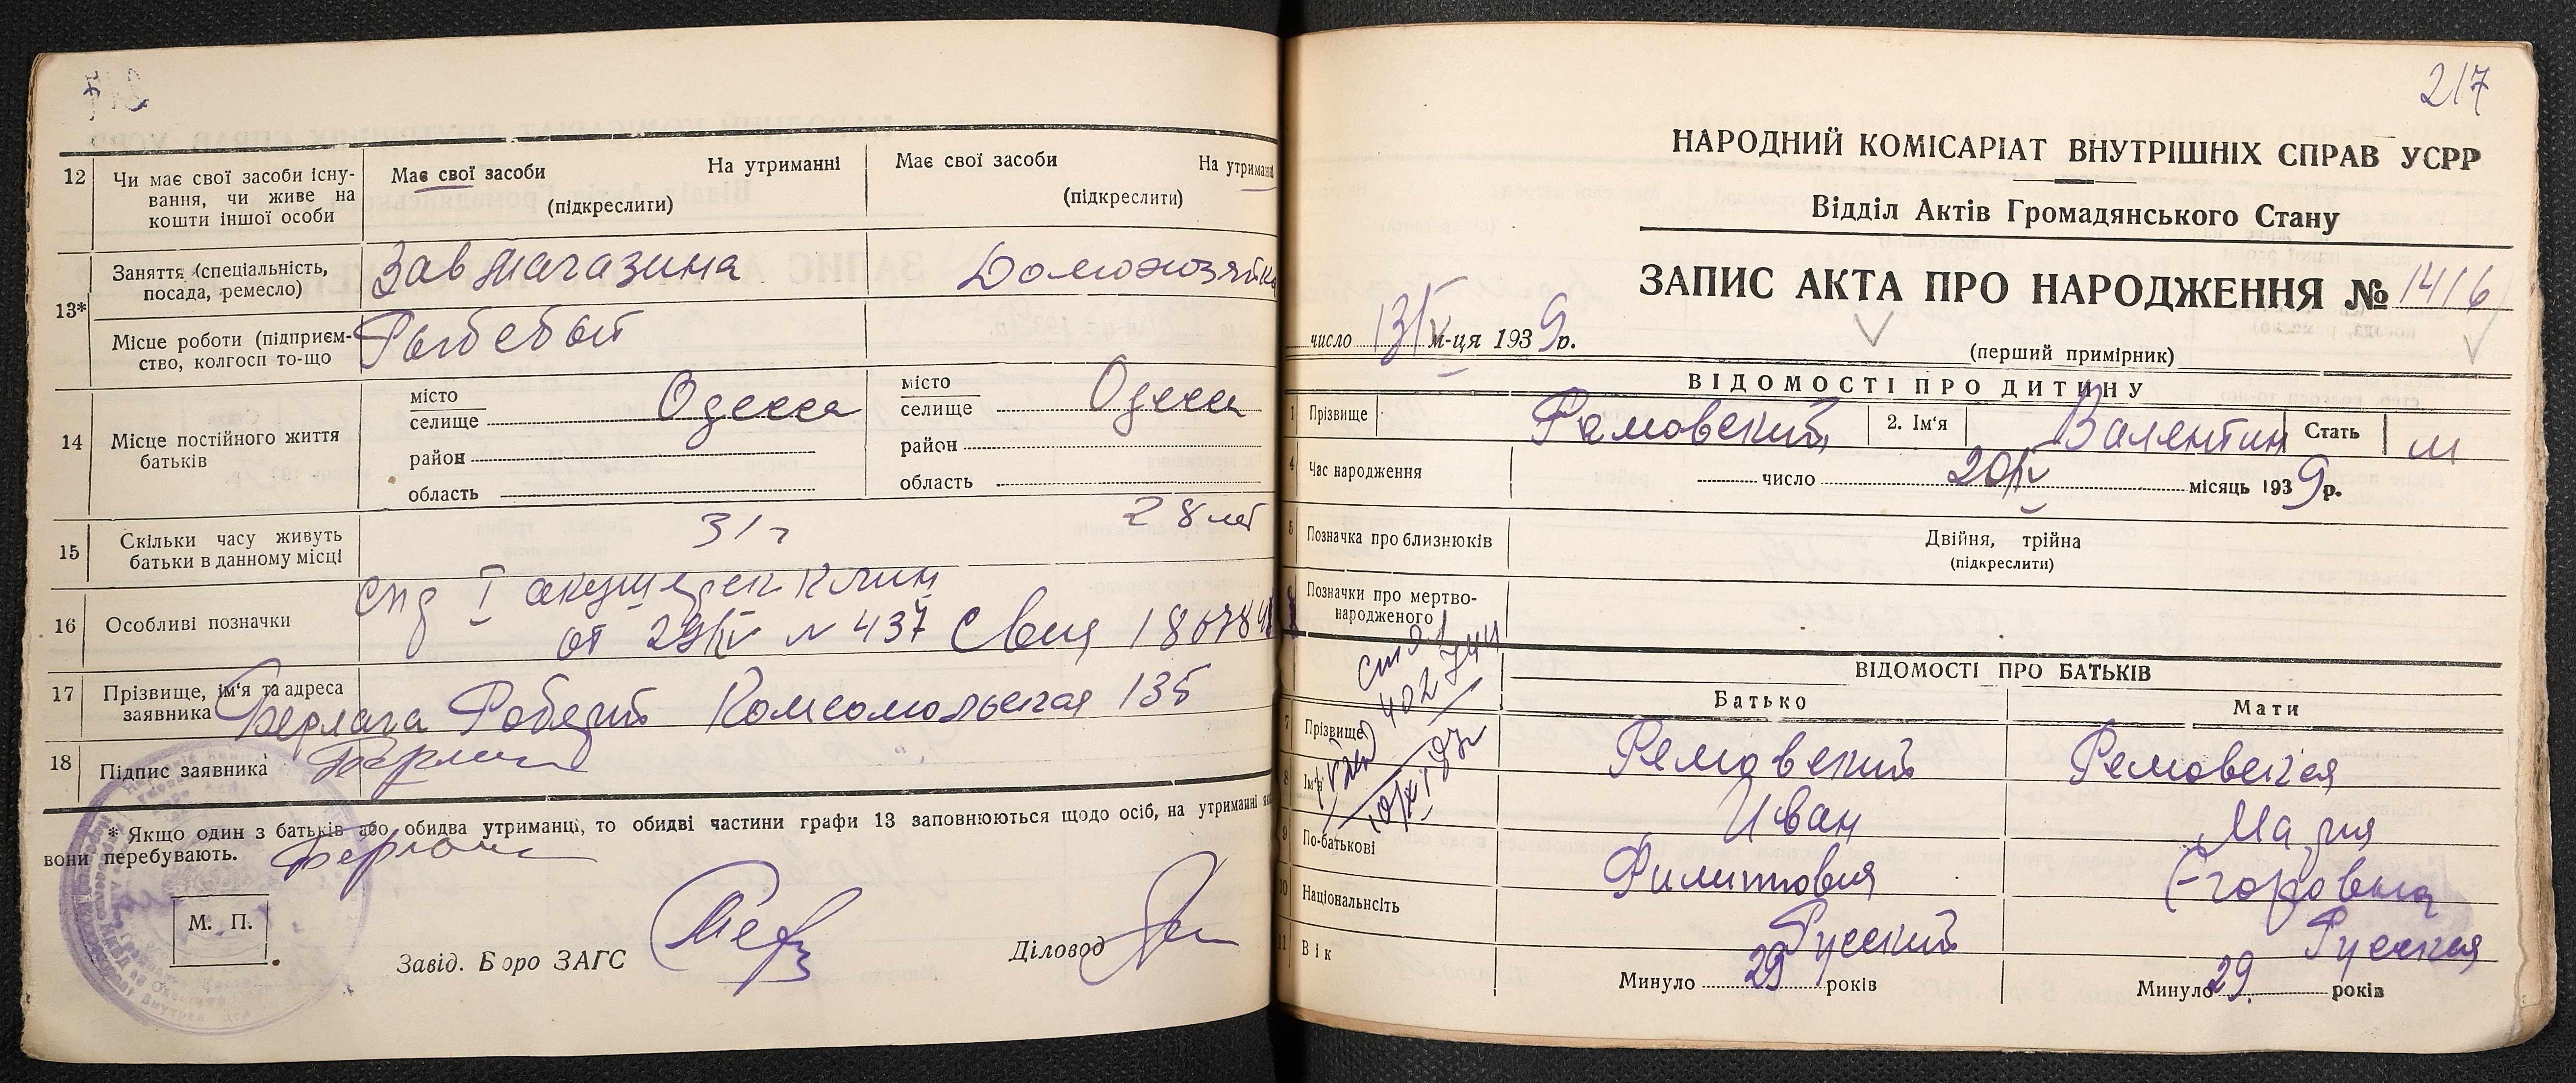 12 Чи має свої засоби існу-
вання, чи живе на
кошти іншої особи
Має свої засоби На утриманні
(підкреслити)
Має свої засоби На утриманні
(підкреслити)
13* Заняття (спеціальність,
посада, ремесло)
Зав магазина Домохозяйка
Місце роботи (підприєм-
ство, колгосп то-що
Рыбсбыт
14 Місце постійного життя
батьків
місто
селище Одесса
район
область
місто
селище Одесса
район
область
15 Скільки часу живуть
батьки в данному місці
31 г 28 лет
16 Особливі позначки
спр I акушерск клин
от 29/IV № 437
17 Прізвище, ім'я та адреса
заявника Берлага Роберт Комсомольская 135
18 Підпис заявника
* Якщо один з батьків або обидва утриманці, то обидві частини графи 13 заповнюються щодо осіб, на утриманні
вони перебувають.
М. П.
Завід. Бюро ЗАГС
Діловод
217
НАРОДНИЙ КОМІСАРІАТ ВНУТРІШНІХ СПРАВ УСРР
Відділ Актів Громадянського Стану
ЗАПИС АКТА ПРО НАРОДЖЕННЯ № 1416
число 13/V м-ця 1939 р.
(перший примірник)
ВІДОМОСТІ ПРО ДИТИНУ
1 Прізвище Рамовский 2. Ім'я Валентин Стать м
4 Час народження число 20/IV місяць 1939 р.
5 Позначка про близнюків
Двійня, трійна
(підкреслити)
6 Позначки про мертво-
народженого
402744
ВІДОМОСТІ ПРО БАТЬКІВ
Батько Мати
7 Прізвище Рамовский Рамовская
8 Ім'я Иван Мария
9 По-батькові Филиппович Егоровна
10 Національнсіть Русский Русская
11 Вік
Минуло 29 років
Минуло 29 років